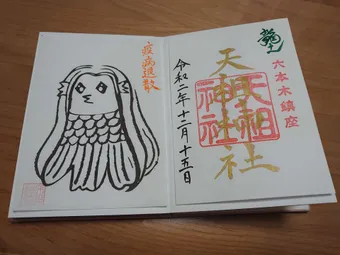 六本木鎮座
天祖神社
天祖神社
令和二年十二月十五日
疫病退散